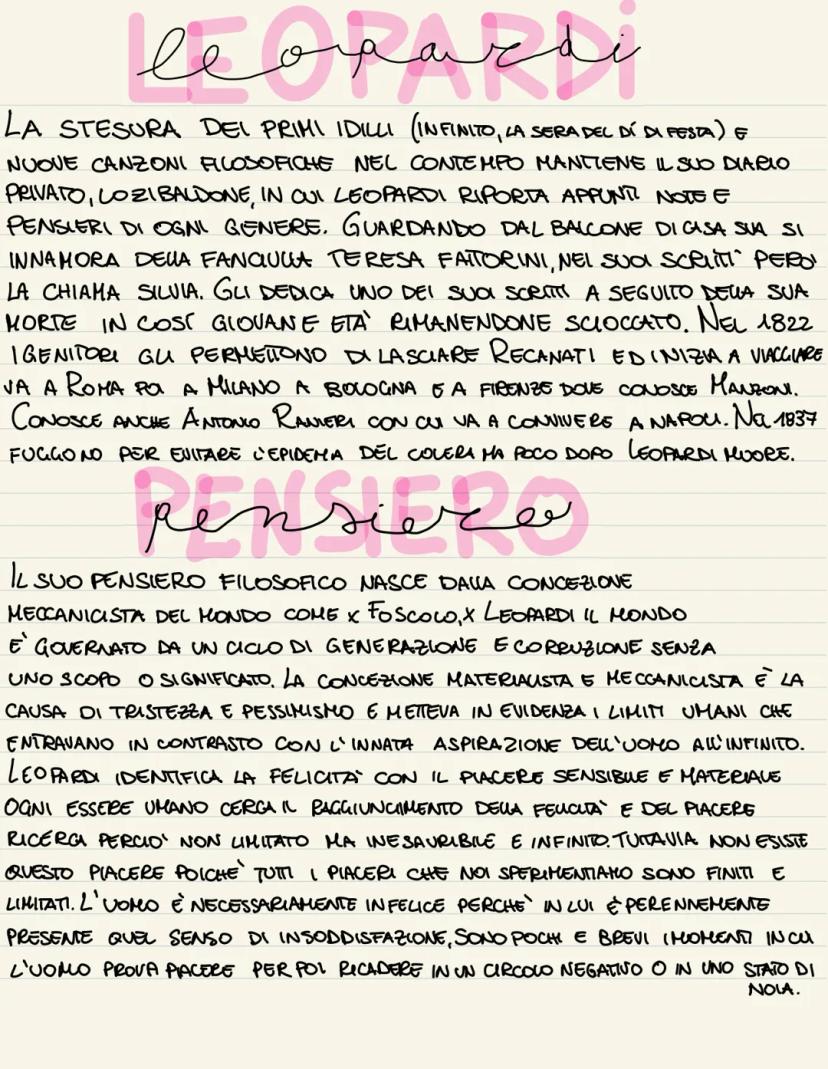 LEOPARDI
leopardi
LA STESURA DEI PRIMI IDILLI (INFINITO, LA SERA DEL DÍ DI FESTA) E
NUOVE CANZONI FILOSOFICHE NEL CONTEMPO MANTIENE IL SUO DIARIO
PRIVATO, LO ZIBALDONE, IN CUI LEOPARDI RIPORTA APPUNTI NOTE E
PENSIERI DI OGNI GENERE. GUARDANDO DAL BALCONE DI CASA SUA SI
INNAMORA DELLA FANCIULLA TERESA FATTORINI, NEI SUOI SCRITTI PERO'
LA CHIAMA SILVIA. GLI DEDICA UNO DEI SUOI SCRITTI A SEGUITO DELLA SUA
MORTE IN COSÍ GIOVANE ETÀ RIMANENDONE SCIOCCATO. NEL 1822
I GENITORI GLI PERMETTONO DI LASCIARE RECANATI ED INIZIA A VIAGGIARE
VA A ROMA POI A MILANO A BOLOGNA E A FIRENZE DOVE CONOSCE MANZONI.
CONOSCE ANCHE ANTONIO RANIERI CON CUI VA A CONVIVERE A NAPOLI. NEL 1837
FUGGONO PER EVITARE L'EPIDEMIA DEL COLERA MA POCO DOPO LEOPARDI MUORE.
PENSIERO
pensiero
IL SUO PENSIERO FILOSOFICO NASCE DALLA CONCEZIONE
MECCANICISTA DEL MONDO COME x FOSCOLO, x LEOPARDI IL MONDO
E' GOVERNATO DA UN CICLO DI GENERAZIONE E CORRUZIONE SENZA
UNO SCOPO O SIGNIFICATO. LA CONCEZIONE MATERIALISTA E MECCANICISTA È LA
CAUSA DI TRISTEZZA E PESSIMISMO E METTEVA IN EVIDENZA I LIMITI UMANI CHE
ENTRAVANO IN CONTRASTO CON L'INNATA ASPIRAZIONE DELL'UOMO ALL'INFINITO.
LEOPARDI IDENTIFICA LA FELICITA' CON IL PIACERE SENSIBILE E MATERIALE
OGNI ESSERE UMANO CERCA IL RAGGIUNGIMENTO DELLA FELICITA' E DEL PIACERE
RICERCA PERCIO' NON LIMITATO MA INESAURIBILE E INFINITO. TUTTAVIA NON ESISTE
QUESTO PIACERE POICHE' TUTTI I PIACERI CHE NOI SPERIMENTIAMO SONO FINITI E
LIMITATI. L'UOMO È NECESSARIAMENTE INFELICE PERCHE' IN LUI È PERENNEMENTE
PRESENTE QUEL SENSO DI INSODDISFAZIONE, SONO POCHI E BREVI I MOMENTI IN CUI
L'UOMO PROVA PIACERE PER POI RICADERE IN UN CIRCOLO NEGATIVO O IN UNO STATO DI
NOIA.